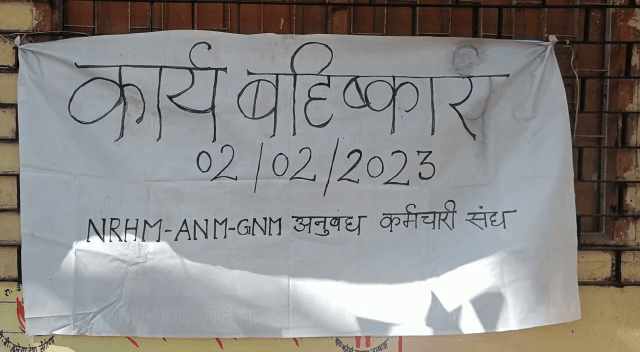 कार्य बहिष्कार
02/02/2023
NRHM-ANM-GNM अनुबंध कर्मचारी संघ